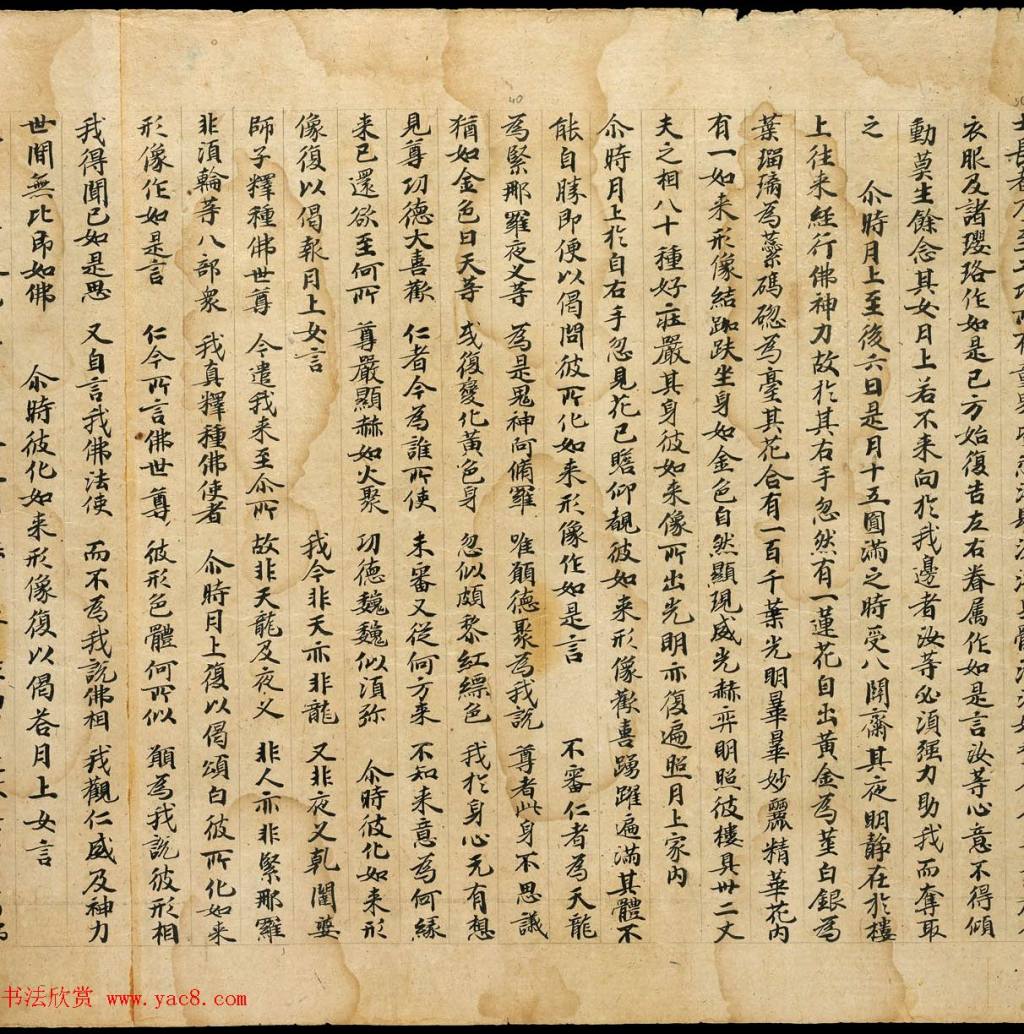 衣服及諸瓔珞作如是已方始復告左右眷属作如是言汝等心意不得傾
動莫生餘念其女月上若不来向於我邊者汝等必湏强力助我而奪取
之 尒時月上至後六日是月十五圓滿之時受八關齋其夜明静在於樓
上往来経行佛神力故於其右手忽然有一蓮花自出黄金為莖白銀為
葉瑠璃為蘂碼碯為臺其花合有一百千葉光明暈暈妙麗精華花内
有一如来形像結跏趺坐身如金色自然顯現威光赫弈明照彼樓具卅二丈
夫之相八十種好莊嚴其身彼如来像所出光明亦復遍照月上家内
尒時月上於自右手忽見花已瞻仰覩彼如来形像歡喜踴躍遍滿其體不
能自勝即便以偈問彼所化如来形像作如是言 不審仁者為天龍
為緊那羅夜叉等 為是鬼神阿脩羅 唯願德聚為我說 尊者此身不思議
猶如金色日天等 或復變化黄色身 忽似頗黎紅縹色 我於身心无有想
見尊功德大喜歡 仁者今為誰所使 未審又從何方来 不知来意為何緣
来已還欲至何所 尊嚴顯赫如火聚 功德魏魏似湏弥 尒時彼化如来形
像復以偈報月上女言 我今非天亦非龍 又非夜叉乹闥婆
師子釋種佛世尊 今遣我来至尒所 故非天龍及夜叉 非人亦非緊那羅
非湏輪等八部衆 我真釋種佛使者 尒時月上復以偈頌白彼所化如来
形像作如是言 仁今所言佛世尊 彼形色體何所似 願為我說彼形相
我得聞已如是思 又自言我佛法使 而不為我說佛相 我觀仁威及神力
世間無比即如佛 尒時彼化如来形像復以偈荅月上女言
40
书法欣赏 www.yac8.com